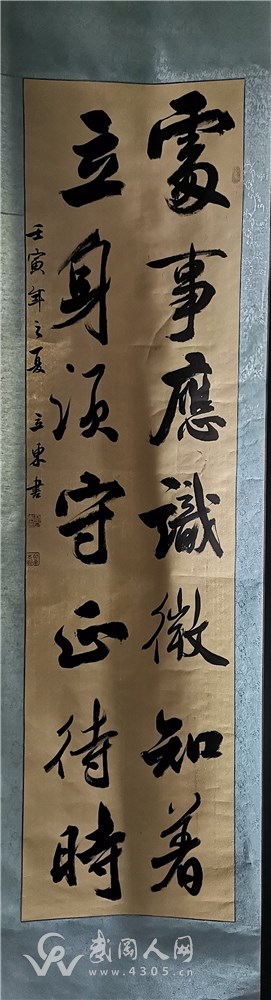 處事應識微知著
立身須守正待時
壬寅年之夏 立東書
武冈人网
www.4305.cn